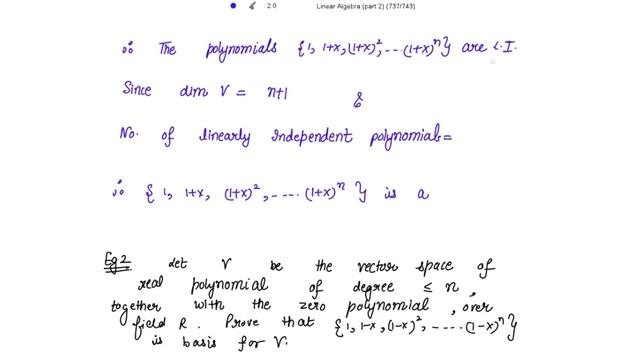 2.0 Linear Algebra (part 2) (737/743)
∴ The polynomials {1, 1+x, (1+x)², ... (1+x)ⁿ} are L.I.
Since dim V = n+1 &
No. of linearly independent polynomials =
∴ { 1, 1+x, (1+x)², ---- (1+x)ⁿ } is a
Eg 2 Let V be the vector space of
real polynomial of degree ≤ n,
together with the zero polynomial, over
field R. Prove that {1, 1-x, (1-x)², ---- (1-x)ⁿ}
is basis for V.